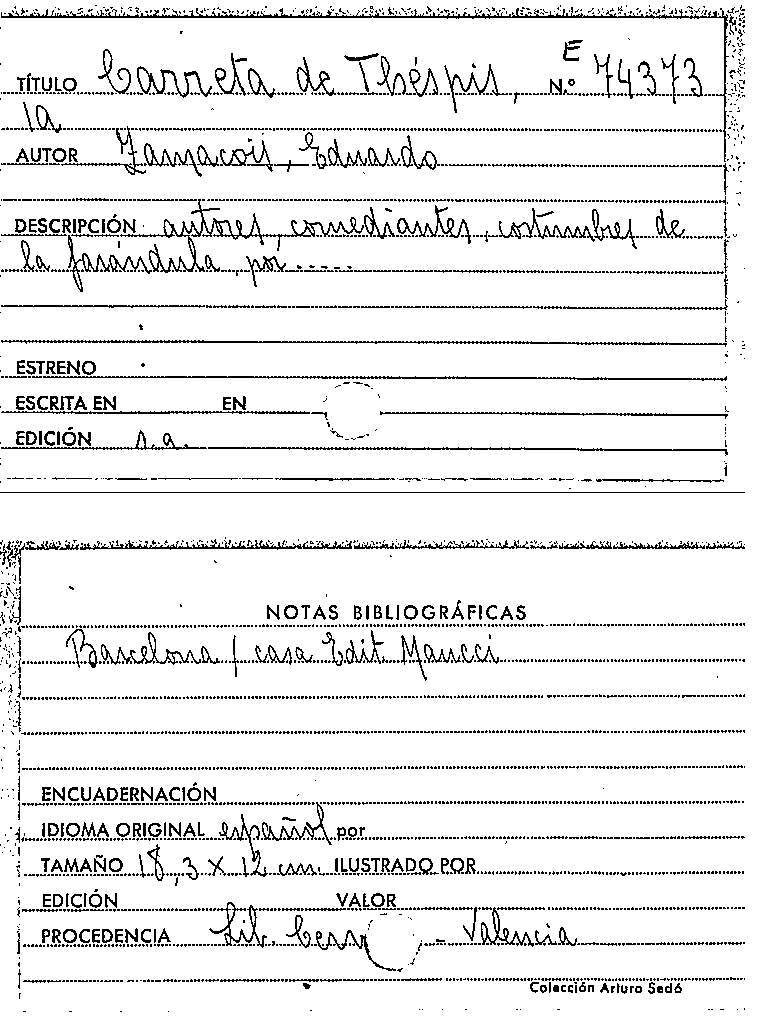 TÍTULO Carreta de Théspis, E N.º 74373
la
AUTOR Zamacois, Eduardo
DESCRIPCIÓN autores, comediantes, costumbres de
la farándula, por.....
ESTRENO
ESCRITA EN EN
EDICIÓN s.a.
NOTAS BIBLIOGRÁFICAS
Barcelona / casa Edit. Maucci
ENCUADERNACIÓN
IDIOMA ORIGINAL español por
TAMAÑO 18,3 X 12 cm. ILUSTRADO POR
EDICIÓN VALOR
PROCEDENCIA Lib. - Valencia
Colección Arturo Sedó